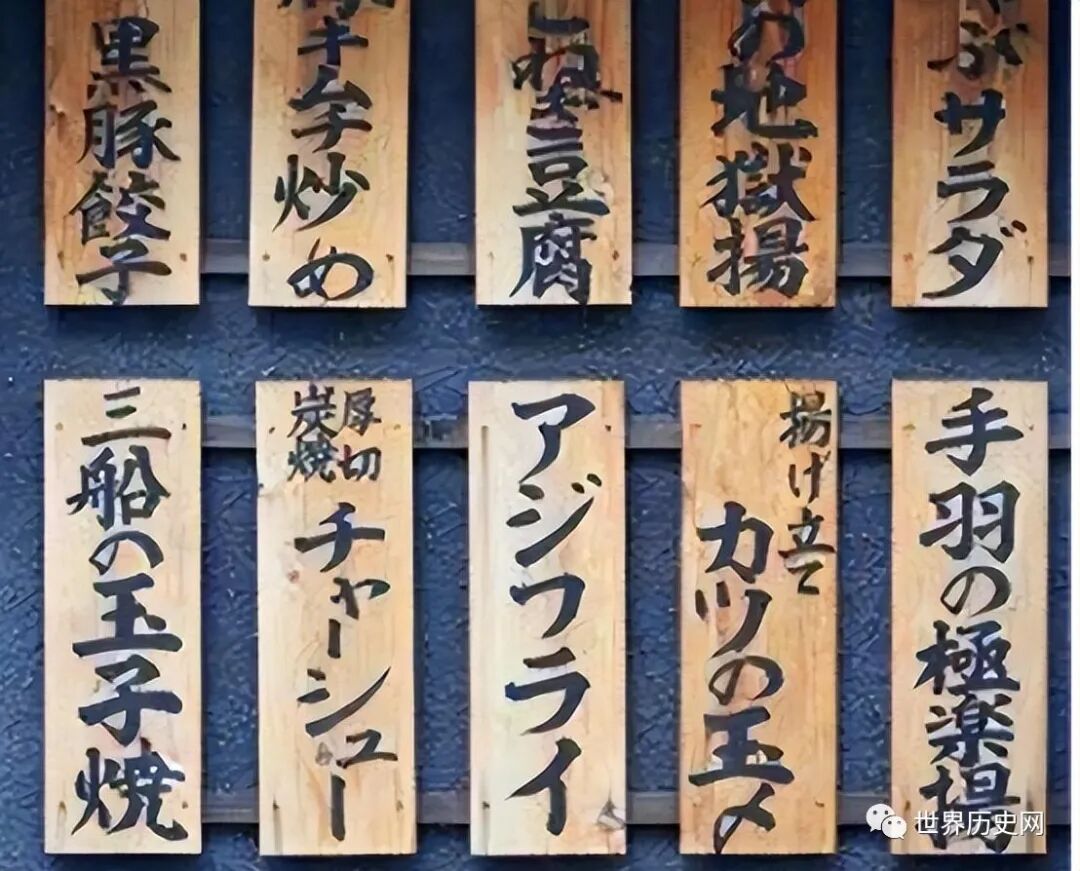 ぶサラダ
お地獄揚
豆腐
キムチ炒め
黒豚餃子
手羽の極楽揚
揚げ立て
カツの玉〆
アジフライ
厚切
炭焼
チャーシュー
三船の玉子焼
世界历史网